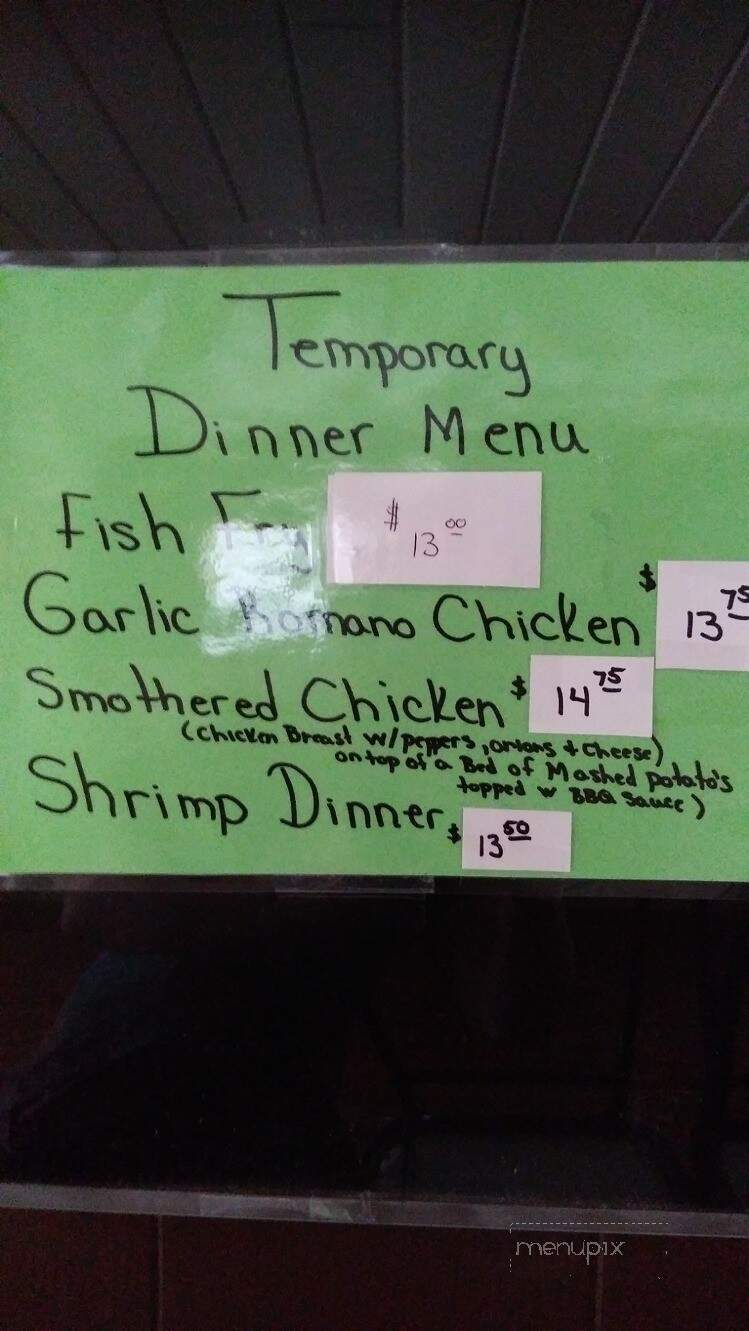 Temporary
Dinner Menu
Fish Fry $13.00
Garlic Romano Chicken $13.75
Smothered Chicken $14.75
(Chicken Breast w/peppers, onions + Cheese)
on top of a Bed of Mashed potato's
topped w BBQ Sauce)
Shrimp Dinner $13.50
menupix